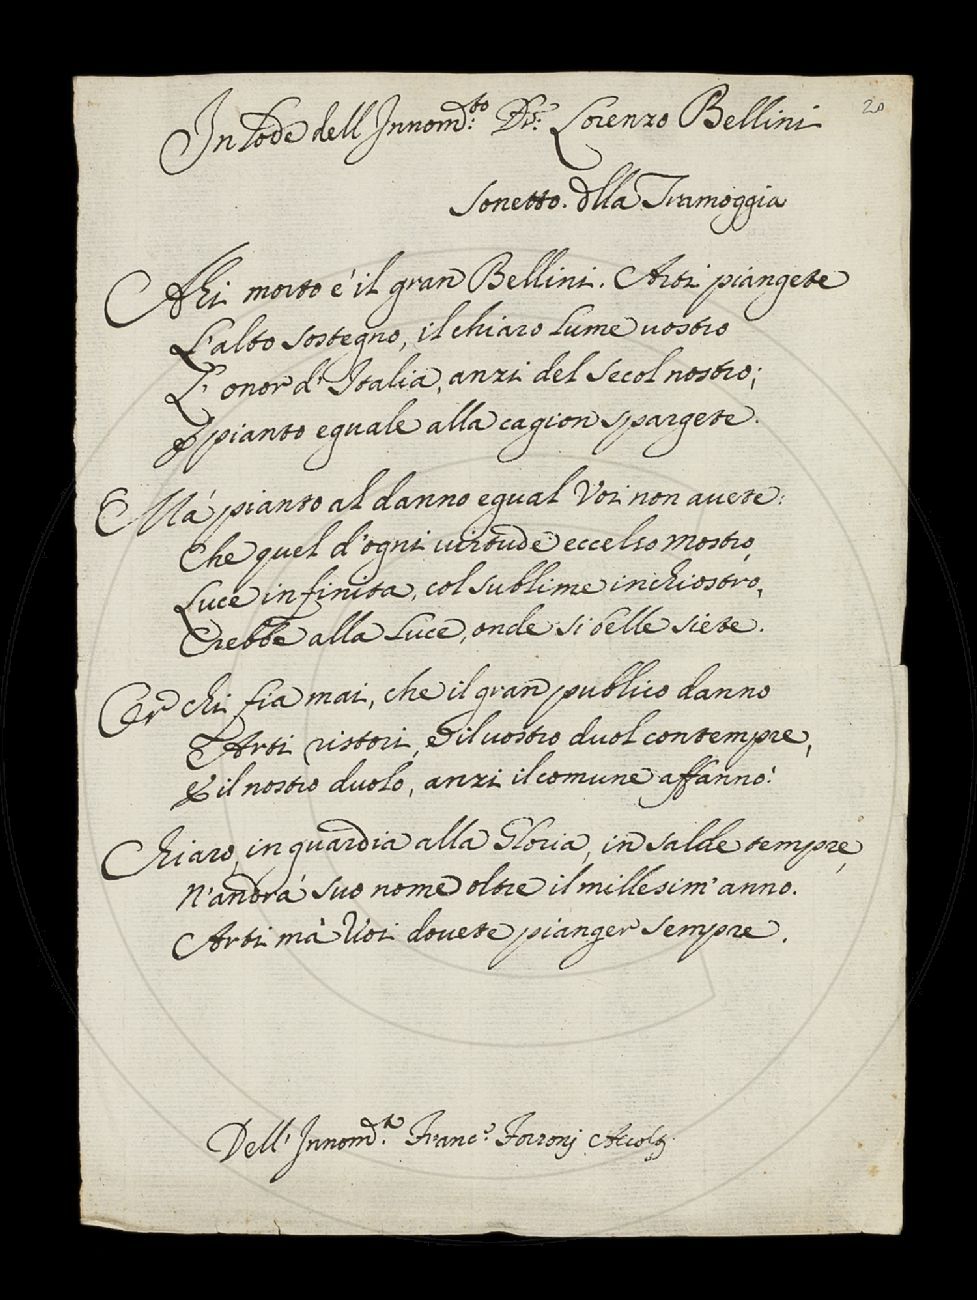 20
In Lode dell Innom.to Dr. Lorenzo Bellini
Sonetto. dlla Tramoggia
Ahi morto é il gran Bellini. Arti piangete
L'alto sostegno, il chiaro lume uostro
L' onor d' Italia, anzi del Secol nostro;
E pianto eguale alla cagion spargete.
Má pianto al danno egual Voi non auete:
Che quel d'ogni uirtude eccelso mostro,
Luce infinita, col sublime inchiostro,
Crebbe alla Luce, onde si belle siete.
Or chi fia mai, che il gran publico danno
O Arti ristori, e il uostro duol contempre,
E il nostro duolo, anzi il comune affanno?
Chiaro, in guardia alla Gloria, in salde tempre,
N'andrá suo nome oltre il millesim' anno.
Arti má Voi douete pianger sempre.
Dell' Innom. Franc.o Forzonj Accolj